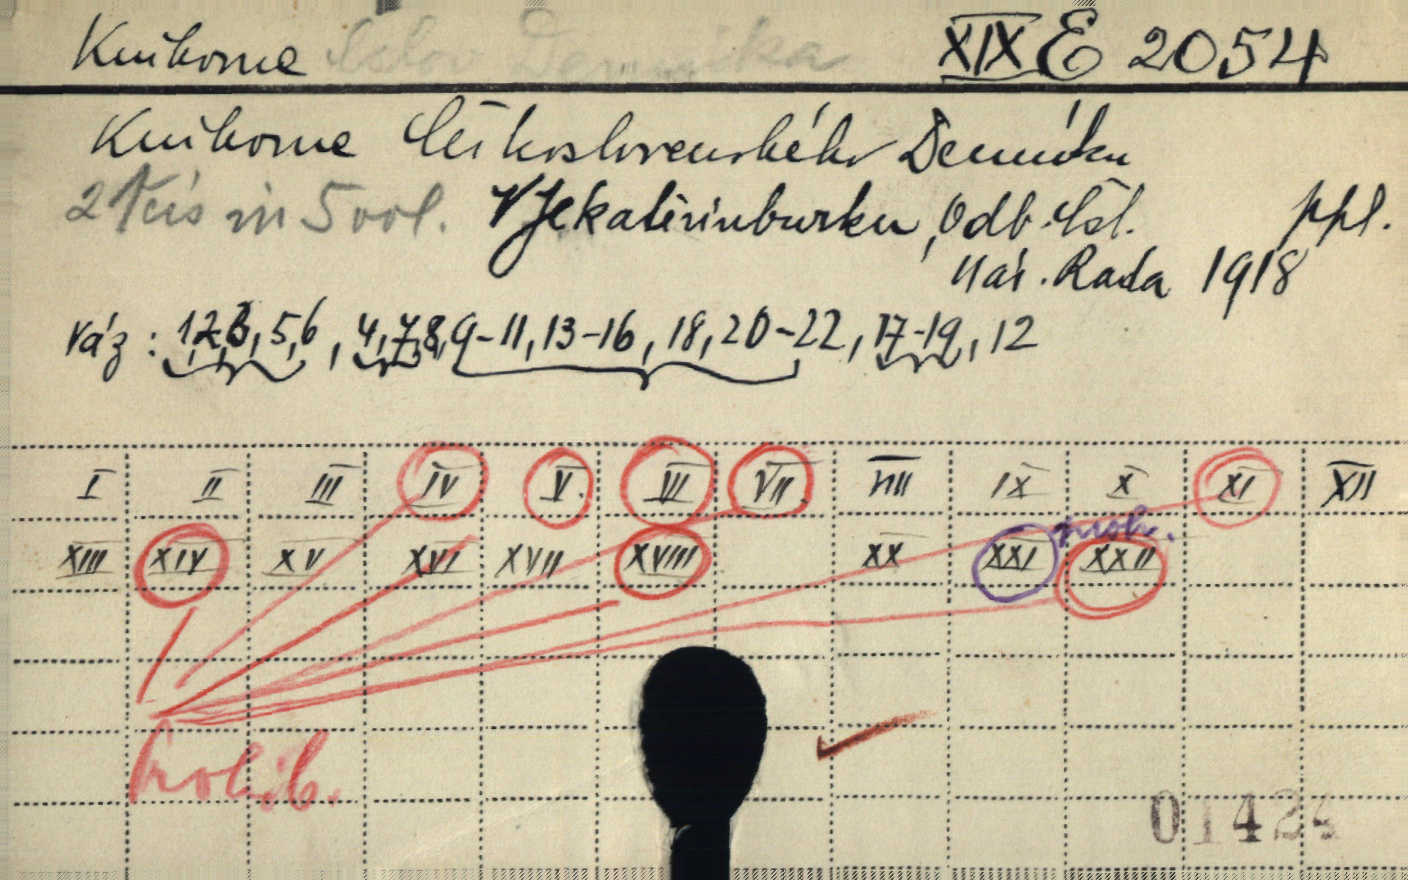 Knihovna Čslov Denníka XIX E 2054
Knihovna Československého Denníku
2 Teis in 5 vol. V Jekatěrinburku, Odb. Čsl. ppl.
Nár. Rada 1918
Váz: 1,2,3,5,6, 4,7,8,9-11,13-16, 18,20-22, 17-19, 12
I II III IV V. VI VII. VIII IX X XI XII
prohib.
XIII XIV XV XVI XVII XVIII XX XXI XXII
Prohib.
01424